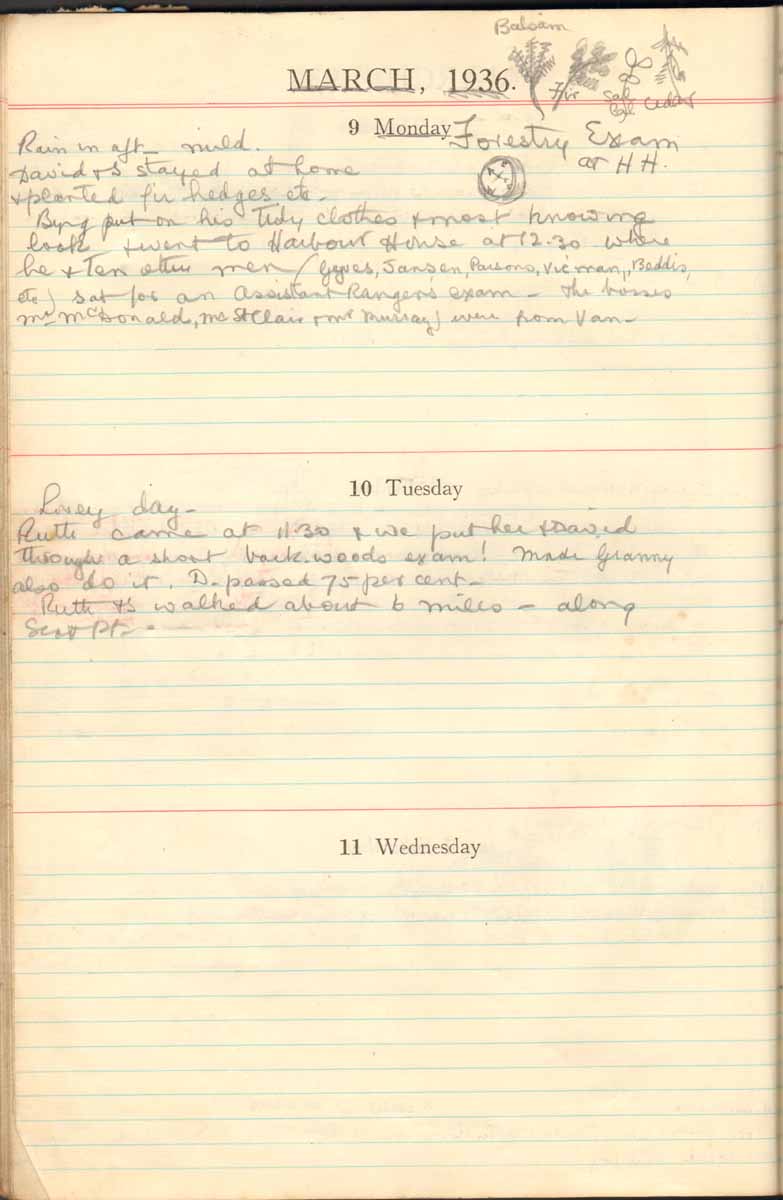 Balsam
MARCH, 1936.
Fir
Sal
Cedar
9 Monday Forestry Exam
at H H.
Rain in aft mild.
David & I stayed at home
& planted fir hedges etc.
Byng put on his Tidy clothes & most knowing
look & went to Harbour House at 12.30 where
he & Ten other men (Gyves, Jansen, Parsons, Beddis,
etc) sat for an Assistant Ranger's exam - The bosses
Mr McDonald, Mc St Clair & Mr Murray) were from Van-
10 Tuesday
Lovey day-
Ruth came at 11.30 & we put her & David
through a short back.woods exam! Made Granny
also do it. D. passed 75 per cent-
Ruth & I walked about 6 miles - along
Scott Pt-
11 Wednesday